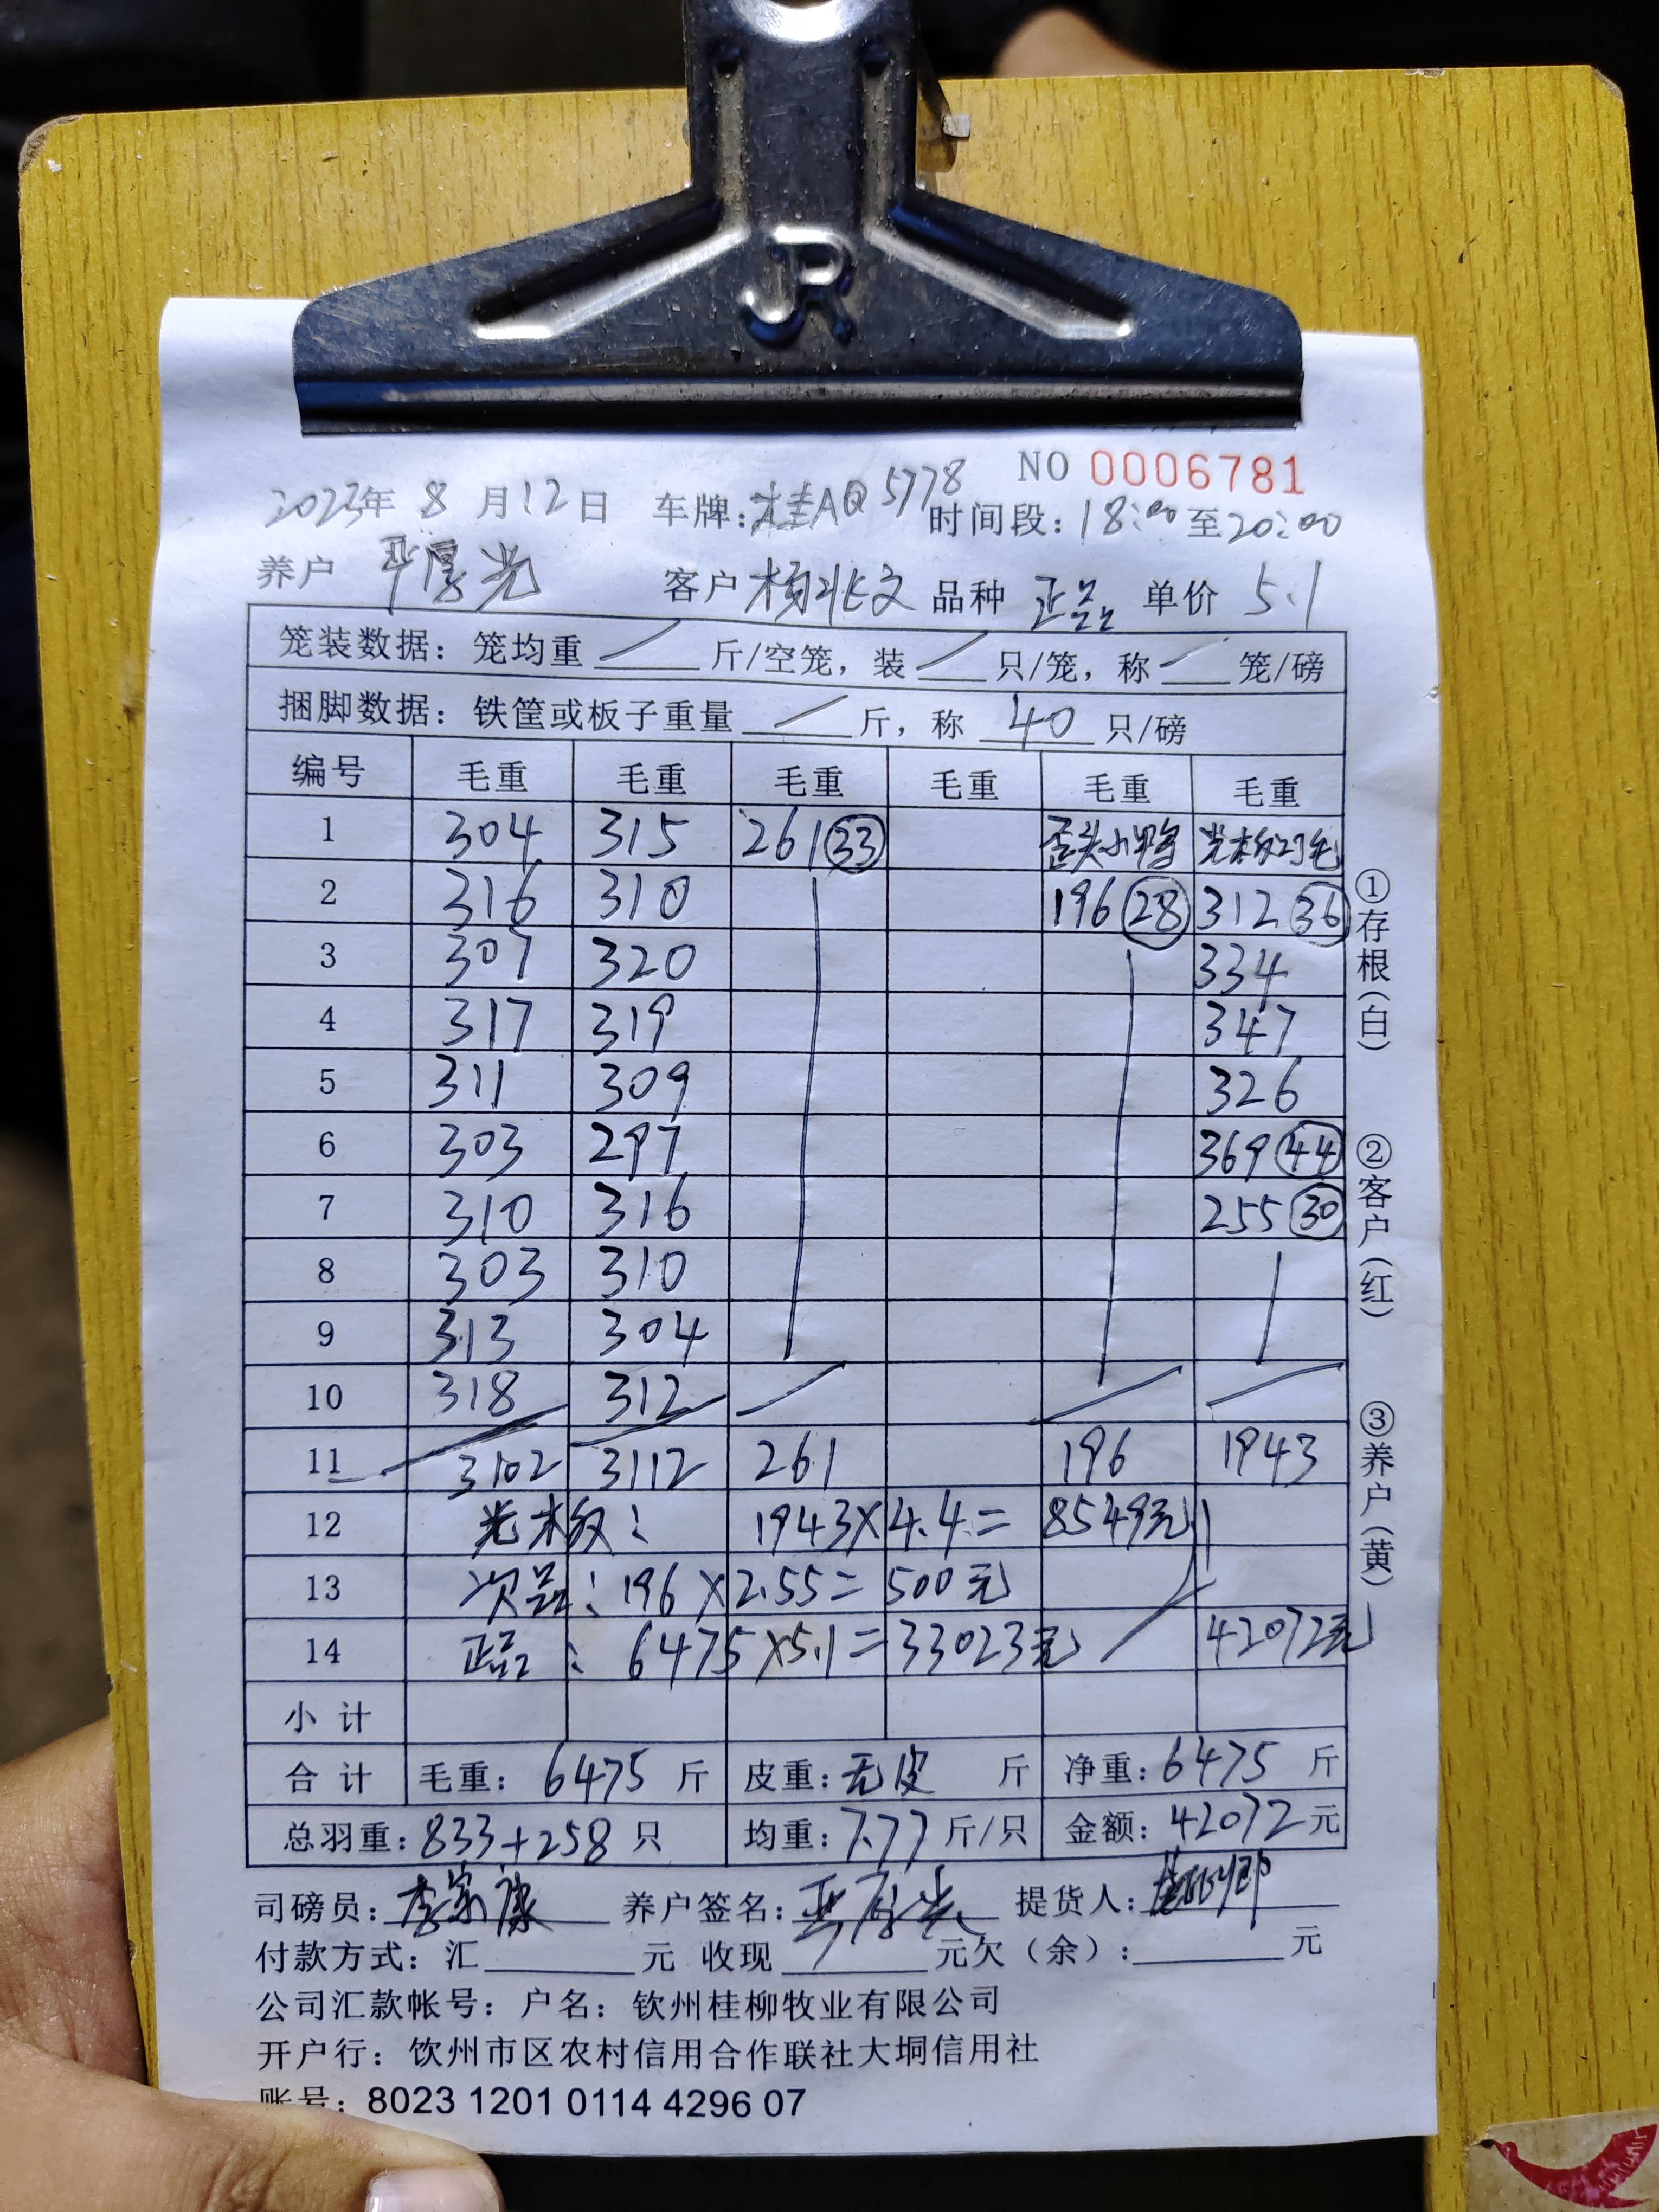 JR
NO 0006781
2023年 8 月 12 日 车牌:桂AQ5778 时间段:18:00至20:00
养户 光 客户 杨兆文 品种 正品 单价 5.1
笼装数据：笼均重 / 斤/空笼，装 / 只/笼，称 / 笼/磅
捆脚数据：铁筐或板子重量 / 斤，称 40 只/磅
编号 毛重 毛重 毛重 毛重 毛重 毛重
1 304 315 261(33) 歪头小鸭 光板刀毛
2 316 310 196(28) 312(36)
3 307 320 334
4 317 319 347
5 311 309 326
6 303 297 369(44)
7 310 316 255(30)
8 303 310
9 313 304
10 318 312
11 3102 3112 261 196 1943
12 光板: 1943×4.4=8549元
13 次品: 196×2.55=500元
14 正品: 6475×5.1=33023元 42072元
小计
合计 毛重：6475 斤 皮重：无皮 斤 净重：6475 斤
总羽重：833+258 只 均重：7.77 斤/只 金额：42072元
司磅员：李家康 养户签名： 提货人：
付款方式：汇 元 收现 元欠（余）： 元
公司汇款帐号：户名：钦州桂柳牧业有限公司
开户行：钦州市区农村信用合作联社大垌信用社
账号：8023 1201 0114 4296 07
①存根(白)
②客户(红)
③养户(黄)